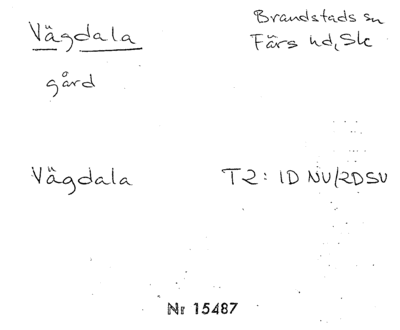 Vägdala
Brandstads sn
Färs hd, Sk
gård
Vägdala
T2: 1D NV/2D SV
Nr 15487